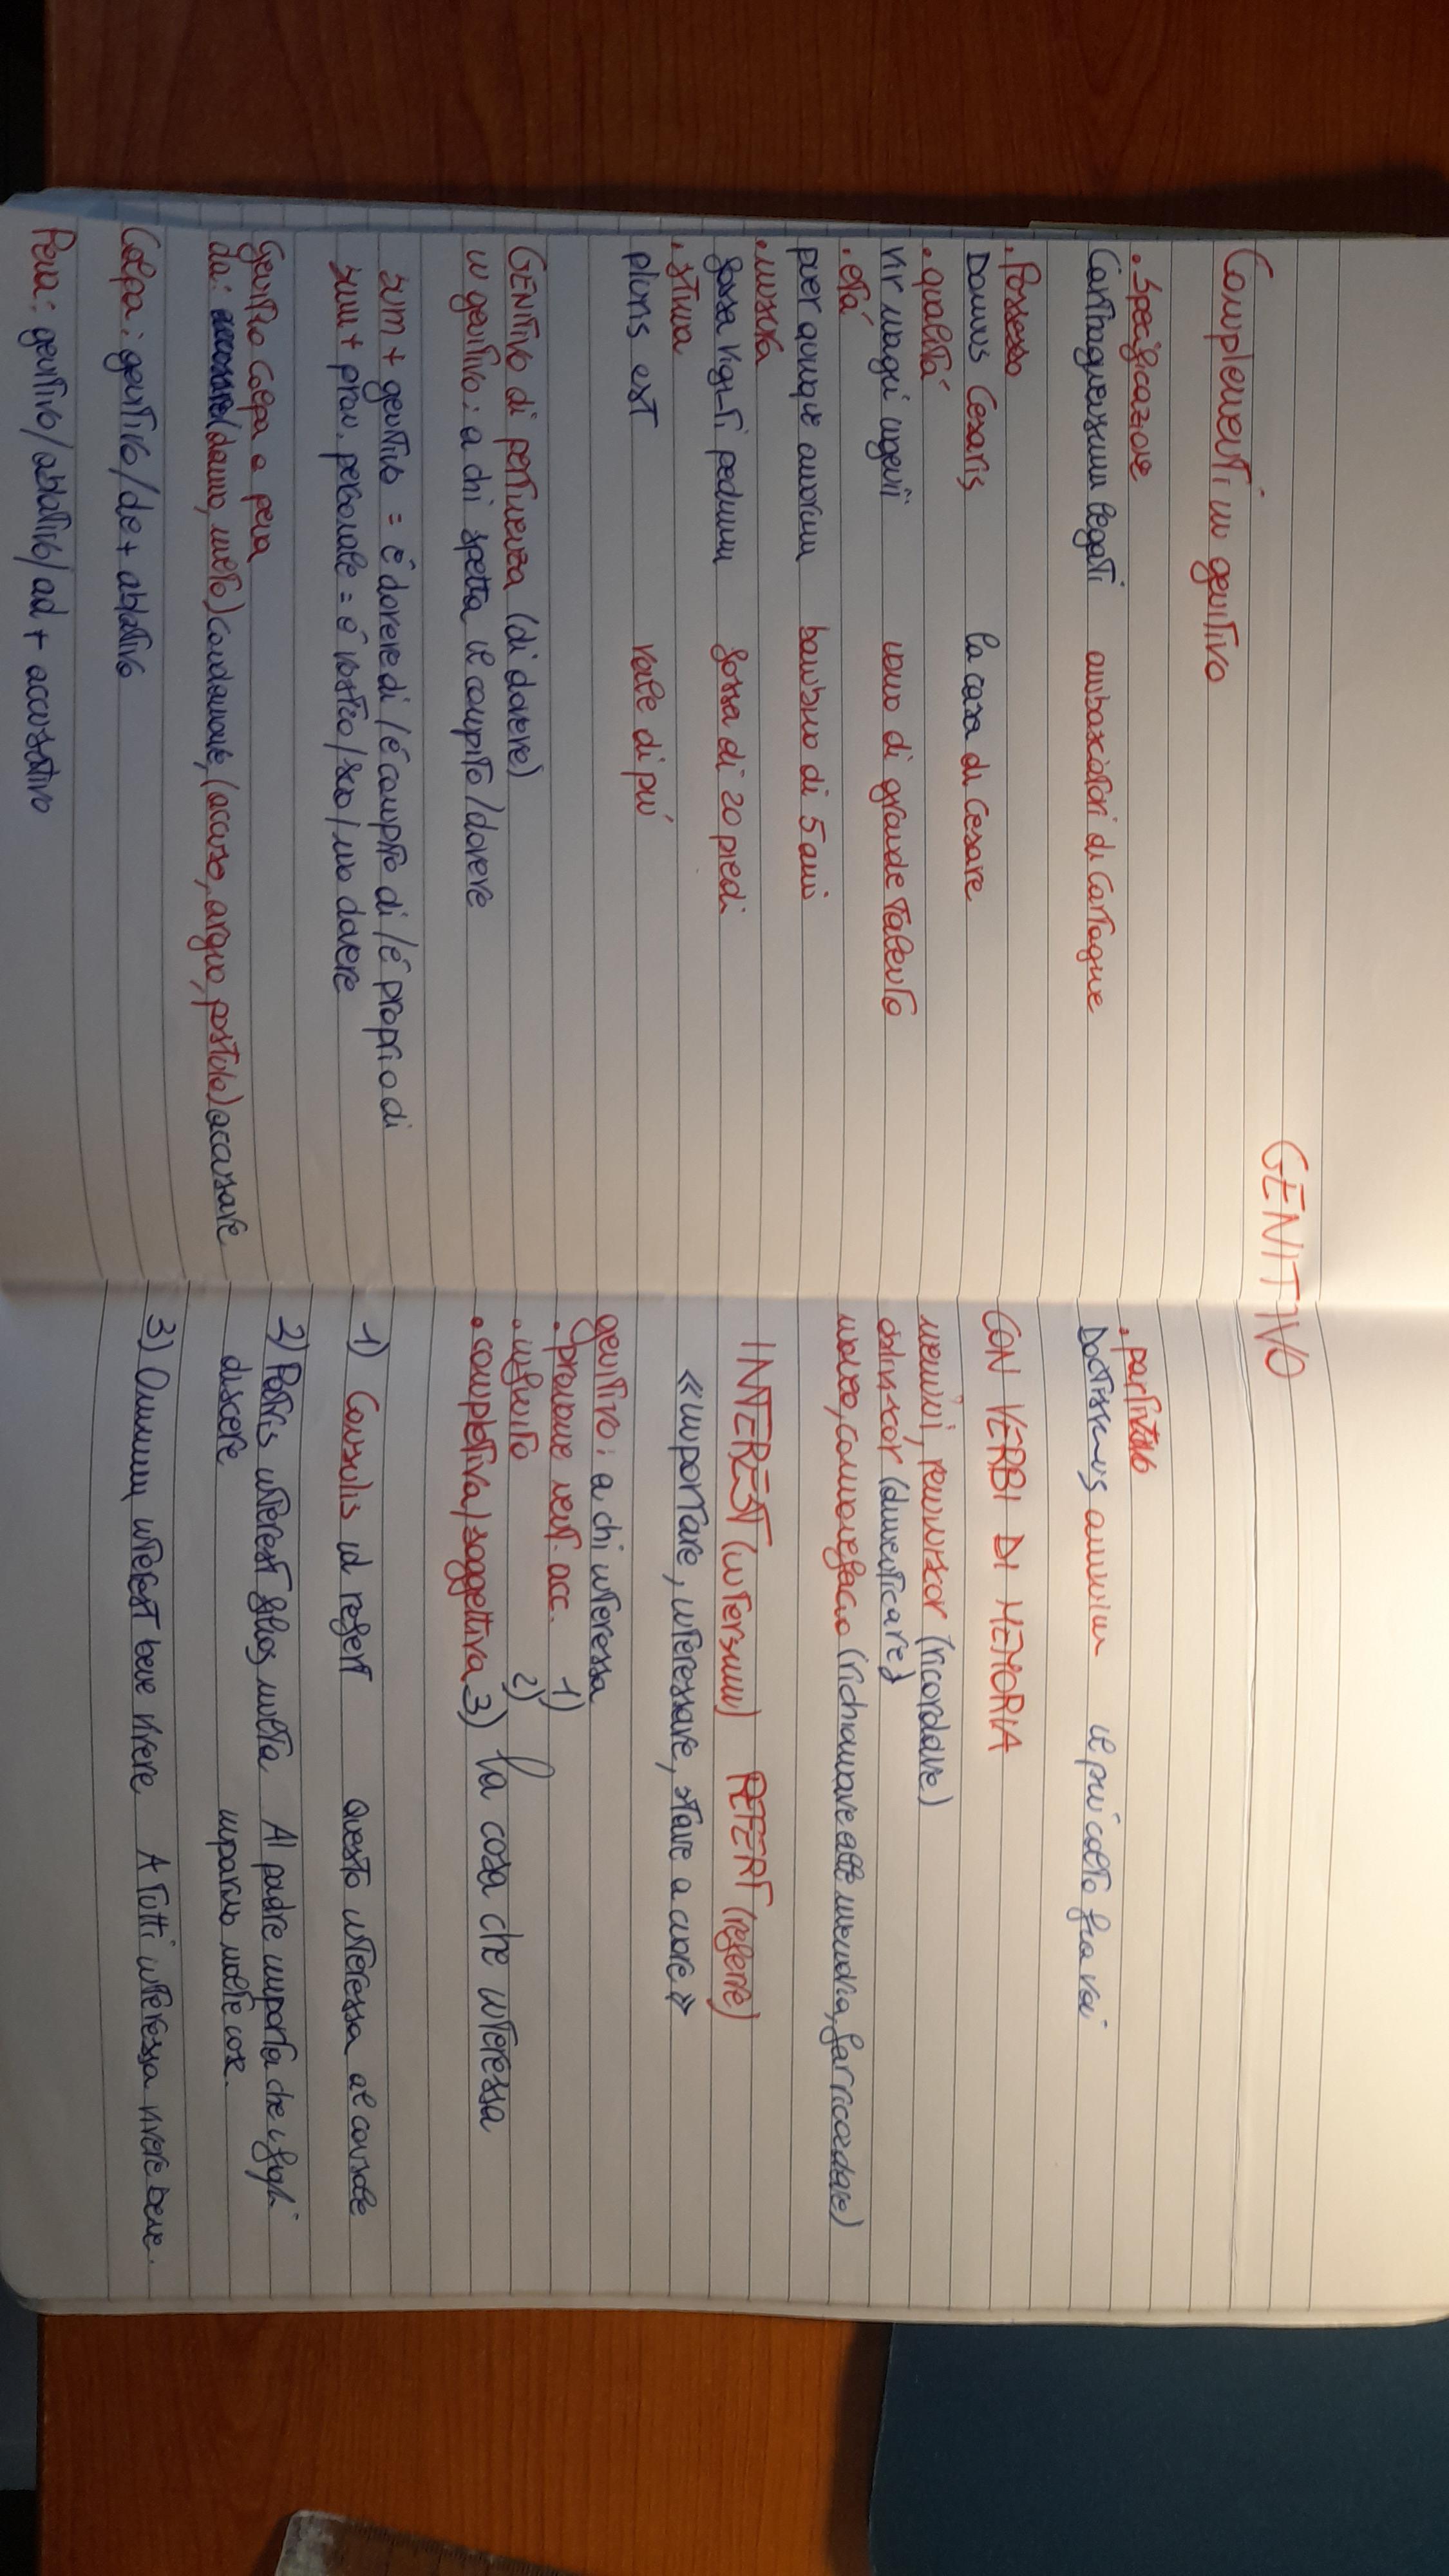 GENITIVO
Complementi in genitivo
. Specificazione
Cartaginensium legati ambasciatori di Cartagine
. Possesso
Domus Cesaris la casa di Cesare
. qualità
Vir magni ingenii uomo di grande talento
. età
puer quinque annorum bambino di 5 anni
. misura
fossa viginti pedum fossa di 20 piedi
. stima
pluris est vale di più
GENITIVO di pertinenza (di dovere)
in genitivo: a chi spetta il compito/dovere
sum + genitivo = è dovere di/è compito di/è proprio di
sum + pron. personale = è vostro/suo/mio dovere
genitivo colpa e pena
da: (damno, multo) condannare, (accuso, arguo, postulo) accusare
Colpa: genitivo/de + ablativo
Pena: genitivo/ablativo/ad + accusativo
. partitivo
Doctissimus omnium il più colto fra voi
CON VERBI DI MEMORIA
memini, reminiscor (ricordare)
obliviscor (dimenticare)
moneo, commonefacio (richiamare alla memoria, far ricordare)
INTEREST (intersum) REFERT (referre)
«importare, interessare, stare a cuore»
genitivo: a chi interessa
. pronome neut. acc. 1)
. infinito 2)
. completiva/soggettiva 3) la cosa che interessa
1) Consulis id refert Questo interessa al console
2) Patris interest filios multa Al padre importa che i figli
discere imparino molte cose.
3) Omnium interest bene vivere A tutti interessa vivere bene.